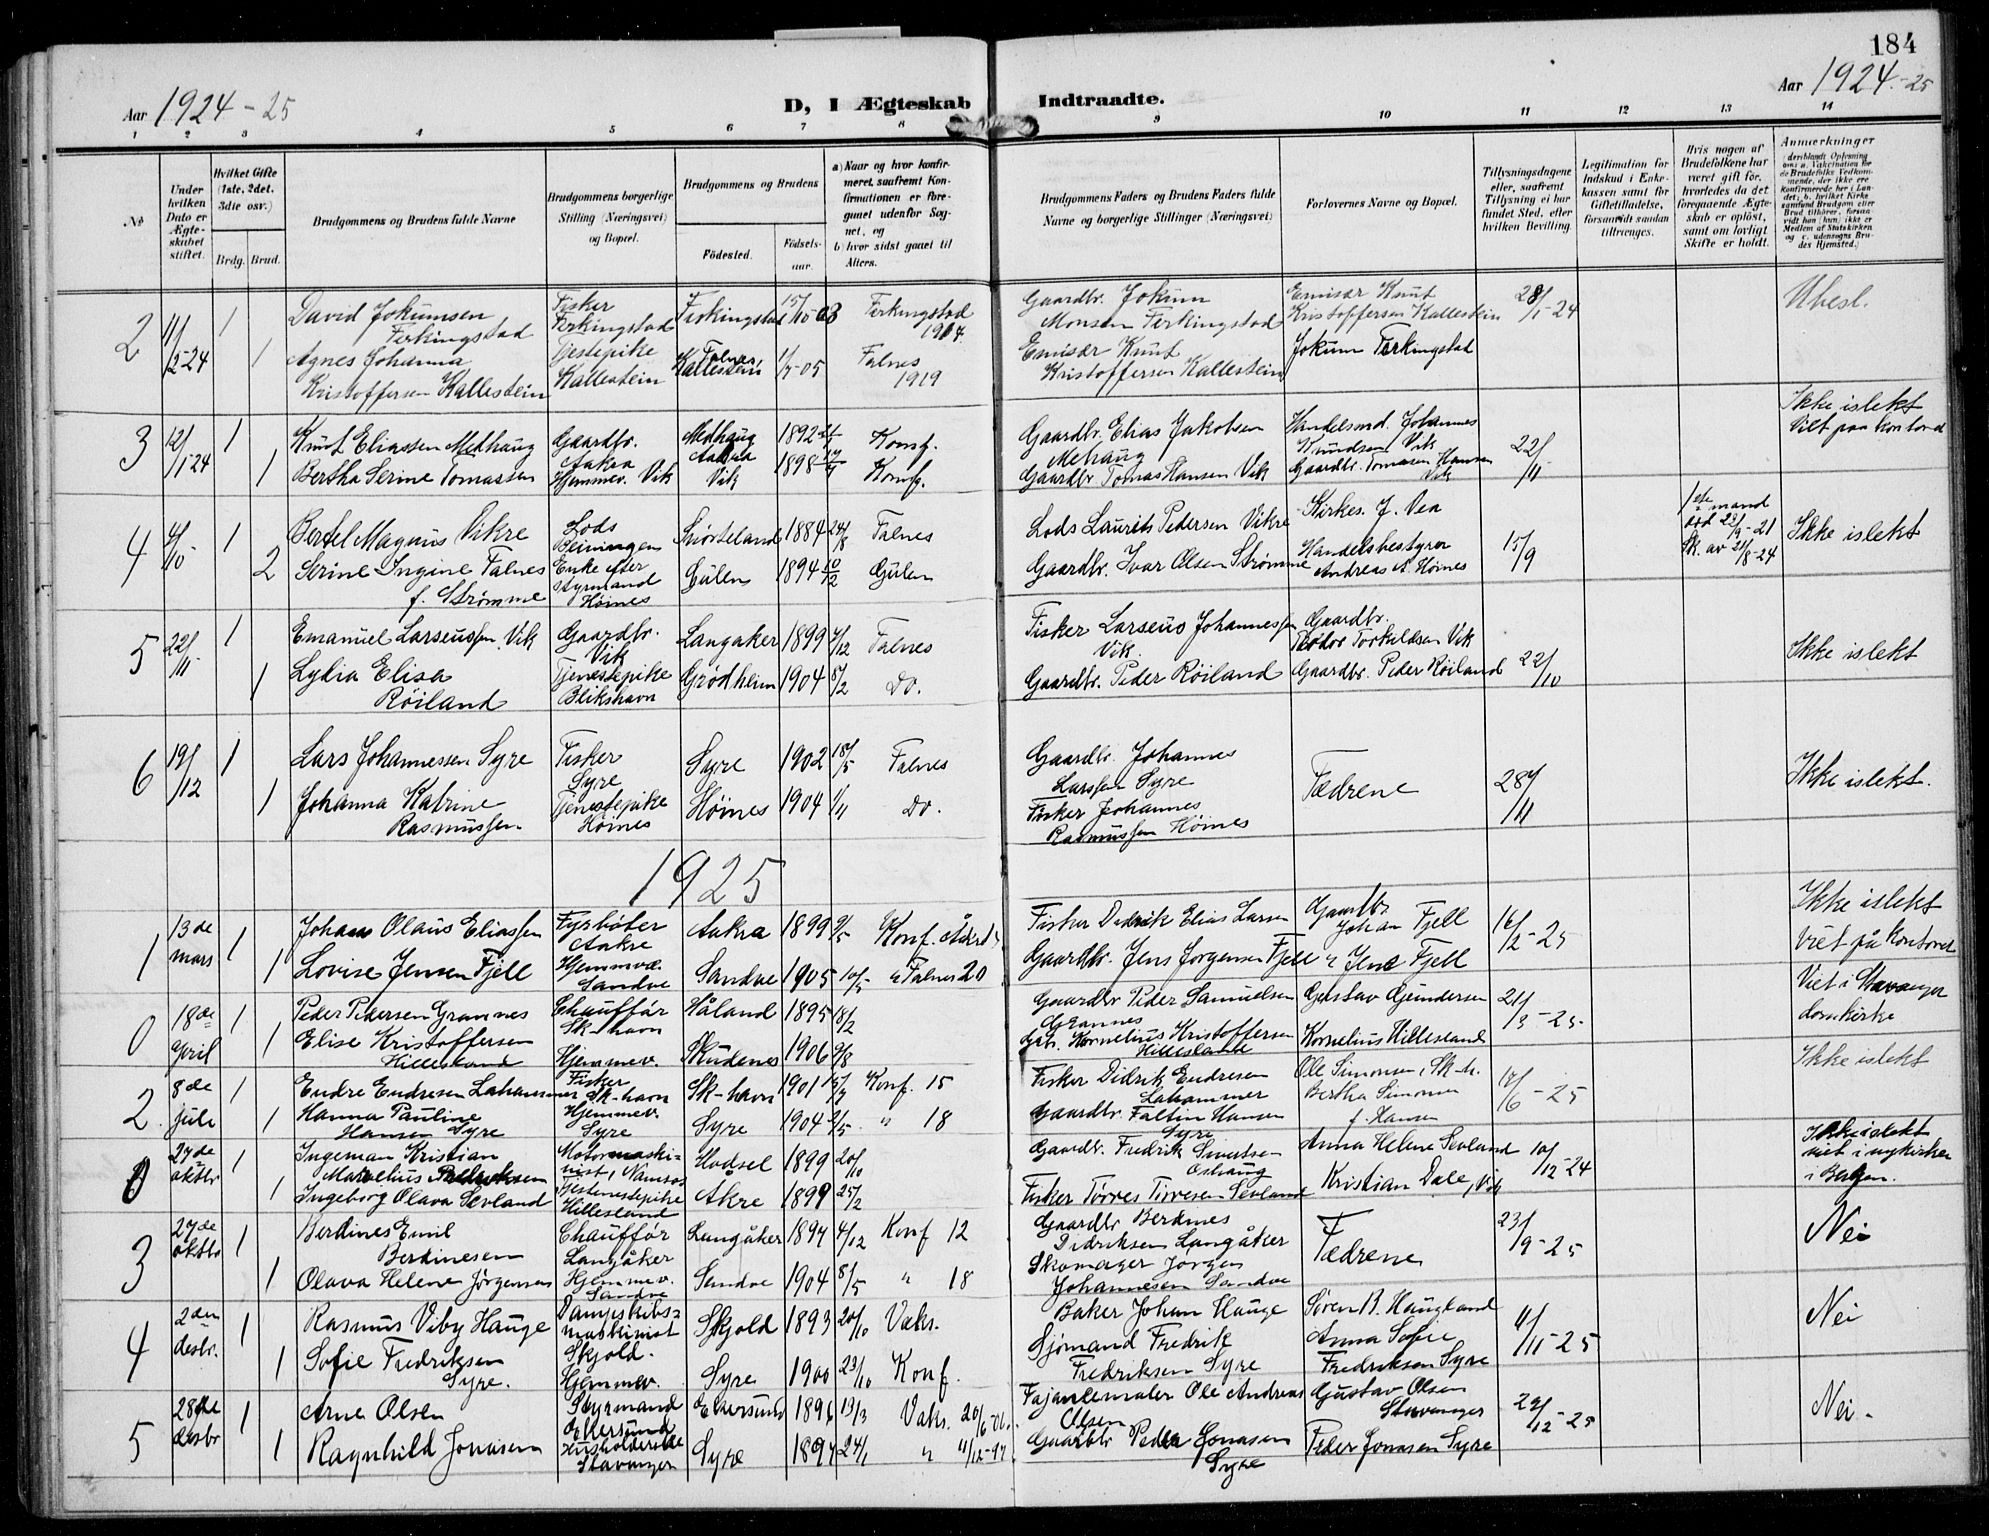 184
Aar 1924-25
D, I Ægteskab Indtraadte.
Aar 1924-25
1 2 3 4 5 6 7 8 9 10 11 12 13 14
№
Under hvilken Dato er Ægteskabet stiftet.
Hvilket Gifte (1ste, 2det, 3die osv.)
Brdg. Brud.
Brudgommens og Brudens fulde Navne
Brudgommens borgerlige Stilling (Næringsvei) og Bopæl.
Brudgommens og Brudens
Fødested.
Fødselsaar.
a) Naar og hvor konfirmeret, saafremt Konfirmationen er foregaaet udenfor Sognet, og
b) hvor sidst gaaet til Alters.
Brudgommens Faders og Brudens Faders fulde Navne og borgerlige Stillinger (Næringsvei)
Forlovernes Navne og Bopæl.
Tillysningsdagene eller, saafremt Tillysning ei har fundet Sted, efter hvilken Bevilling.
Legitimation for Indskud i Enkekassen samt for Giftetilladelse, forsaavidt saadan tiltrænges.
Hvis nogen af Brudefolkene har været gift før, hvorledes da det foregaaende Ægteskab er opløst, samt om lovligt Skifte er holdt.
Anmerkninger (deriblandt Oplysning om: a. Vakcination for de Brudefolks Vedkommende, der ikke ere konfirmerede her i Landet; b. hvilket Kirkesamfund Brudgom eller Brud tilhører, forsaavidt han (hun) ikke er Medlem af Statskirken og c. udensogns Brudes Hjemsted.)
2 11/2-24 1 David Jokumsen Ferkingstad Fisker Ferkingstad Ferkingstad 15/10-03 Ferkingstad Gaardbr. Jokum Monsen Ferkingstad Emisær Knut Kristoffersen Kallestein 28/1-24 Ubesl.
1 Agnes Johanna Kristoffersen Kallestein Kallestein Falnes Kallestein Falnes 1919 Emisær Knut Kristoffersen Kallestein Jokum Ferkingstad
3 12/1-24 1 Knut Eliassen Medhaug Gaardbr. Aakra Medhaug Aakra 1892 Konf. Gaardbr. Elias Jakobsen Mehaug Handelsmd. Johannes Knudsen Vik 22/11 Ikke islekt
1 Bertha Serine Tomassen Hjemmev. Vik Vik 1898 Konf. Gaardbr Tomas Hansen Vik Gaardbr. Tomasen Hansen Vik
4 4/10 1 Bertel Magnus Vikre Lods Snörteland 1884 24/8 Falnes Lods Laurits Pedersen Vikre Kirkes. J. Vea 15/9 1ste mand Ikke islekt
2 Serine Ingine Falnes f. Strømme Enke efter styrmand Høines Gulen 1894 10/2 Gulen Gaardbr. Ivar Olsen Strømme Handelsbestyrer Andreas A. Høines Sk. av 21/8-24
5 22/11 1 Emanuel Larseussen Vik Gaardbr. Vik Langaker 1899 4/12 Falnes Fisker Larseus Johannessen Vik. Gaardbr. Teodor Torkildsen Vik 22/10 Ikke islekt
1 Lydia Elisa Røiland Tjenestepike Blikshavn Grødheim 1904 8/2 Do. Gaardbr. Peder Røiland Gaardbr. Peder Røiland
6 19/12 1 Lars Johannessen Syre Fisker Syre Syre 1902 18/5 Falnes Gaardbr. Johannes Larssen Syre Fædrene 28/11 Ikke islekt.
1 Johanna Katrine Rasmussen Tjenestepike Høines Høines 1904 1/11 Do. Fisker Johannes Rasmussen Høines
1925
1 13de mars 1 Johans Olaus Eliassen Fyrbøter Aakre Aakra 1899 9/5 Konf. Fisker Didrik Elias Larsen Gaardbr Johan Fjell 16/2-25 Ikke islekt
1 Lovise Jensen Fjell Hjemmev. Sandve Sandve 1905 10/5 " Falnes 20 Gaardbr. Jens Jørgensen Fjell " Jens Fjell Viet på kontoret
0 18de april 1 Peder Pedersen Grannes Chauffør Sk-havn Håland 1895 18/2 Gaardbr Peder Samuelsen Grannes Gustav Gundersen 21/3-25 Viet i Stavanger domkirke
1 Elise Kristoffersen Hillesland Hjemmev. Skudenes 1906 9/8 Gbr. Kornelius Kristoffersen Hillesland Kornelius Hillesland
2. 8de juli 1 Endre Endresen Lahammer Fisker Sk-havn Sk-havn 1901 15/7 Konf. 15 Fisker Didrik Endresen Lahammer Ole Simonsen, Sk-h. 17/6-25 Ikke islekt
1 Hanna Pauline Hansen Syre Hjemmev. Syre Syre 1904 2/5 " 18 Gaardbr. Faltin Hansen Syre Bertha Simonsen f. Hansen
0 27de oktbr 1 Ingeman Kristian Marselius Motormaskinist, Namsos Hodsel 1899 20/10 Gaardbr. Fredrik Oshaug Anna Helene Sevland 10/12-24 Ikke islekt viet i nykirken i Bergen.
1 Ingeborg Olava Sevland Hillesland Akre 1899 25/2 Fisker Torres Torresen Sevland Kristian Dale, Vik
3 27de oktbr 1 Berdines Emil Berdinesen Chauffør Langåker Langåker 1894 4/12 Konf 12 Gaardbr Berdines Didriksen Langåker Fædrene 23/9-25 Nei
1 Olava Helene Jørgensen Hjemmev. Sandve Sandve 1904 8/5 " 18 Skomager Jørgen Johannesen Sandve
4 2den desbr. 1 Rasmus Viby Hauge Dampskibsmaskinist Skjold. Skjold 1893 20/10 Vaks. Baker Johan Hauge Søren B. Haugland 11/11-25 Nei
1 Sofie Fredriksen Syre. Hjemmev. Syre 1900 23/10 Konf. Sjømand Fredrik Fredriksen Syre Anna Sofie Fredriksen Syre
5 28de desbr 1 Arne Olsen Styrmand Ekersund Ekersund 1896 13/3 Vaks. 20/6-06. Fajansemaler Ole Andreas Olsen Gustav Olsen Stavanger 29/12-25 Nei.
1 Ragnhild Jonasen Husholderske Stavanger Syre 1897 24/1 " 11/12-97. Gaardbr Peder Jonasen Syre Peder Jonasen Syre